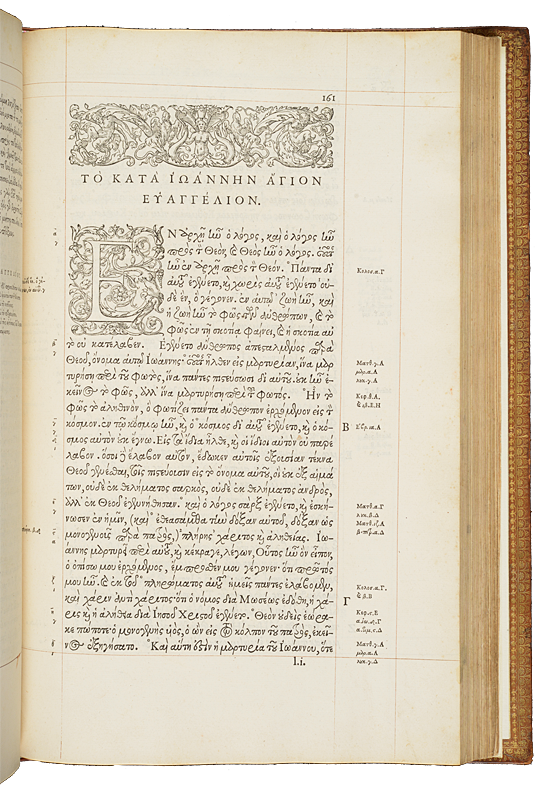 161
ΤΟ ΚΑΤΑ ἸΩΑΝΝΗΝ ἍΓΙΟΝ
ΕΥΑΓΓΕΛΙΟΝ.
ΕΝ ἀρχῇ ἦν ὁ λόγος, καὶ ὁ λόγος ἦν
πρὸς τ Θεὸν, καὶ Θεὸς ἦν ὁ λόγος. οὗτος
ἦν ἐν ἀρχῇ πρὸς τ Θεόν. Πάντα δι
αὐτοῦ ἐγένετο, καὶ χωρὶς αὐτοῦ ἐγένετο οὐ-
δὲ ἓν, ὃ γέγονεν. ἐν αὐτῷ ζωὴ ἦν, καὶ
ἡ ζωὴ ἦν τὸ φῶς τῶν ἀνθρώπων, καὶ τὸ
φῶς ἐν τῇ σκοτίᾳ φαίνει, καὶ ἡ σκοτία αὐ
τὸ οὐ κατέλαβεν. Ἐγένετο ἄνθρωπος ἀπεσταλμένος παρὰ
Θεοῦ, ὄνομα αὐτῷ Ἰωάννης· οὗτος ἦλθεν εἰς μαρτυρίαν, ἵνα μαρ
τυρήσῃ περὶ τοῦ φωτὸς, ἵνα πάντες πιστεύσωσι δι αὐτοῦ. οὐκ ἦν ἐ-
κεῖνος τὸ φῶς, ἀλλ ἵνα μαρτυρήσῃ περὶ τοῦ φωτός. Ἦν τὸ
φῶς τὸ ἀληθινὸν, ὃ φωτίζει πάντα ἄνθρωπον ἐρχόμενον εἰς τ
κόσμον. ἐν τῷ κόσμῳ ἦν, καὶ ὁ κόσμος δι αὐτοῦ ἐγένετο, καὶ ὁ κό-
σμος αὐτὸν οὐκ ἔγνω. Εἰς τὰ ἴδια ἦλθε, καὶ οἱ ἴδιοι αὐτὸν οὐ παρέ
λαβον. ὅσοι δὲ ἔλαβον αὐτὸν, ἔδωκεν αὐτοῖς ἐξουσίαν τέκνα
Θεοῦ γενέσθαι, τοῖς πιστεύουσιν εἰς τὸ ὄνομα αὐτοῦ, οἳ οὐκ ἐξ αἱμά
των, οὐδὲ ἐκ θελήματος σαρκὸς, οὐδὲ ἐκ θελήματος ἀνδρὸς,
ἀλλ ἐκ Θεοῦ ἐγεννήθησαν. καὶ ὁ λόγος σὰρξ ἐγένετο, καὶ ἐσκή-
νωσεν ἐν ἡμῖν, (καὶ ἐθεασάμεθα τὴν δόξαν αὐτοῦ, δόξαν ὡς
μονογενοῦς παρὰ πατρὸς,) πλήρης χάριτος καὶ ἀληθείας. Ἰω-
άννης μαρτυρεῖ περὶ αὐτοῦ, καὶ κέκραγε, λέγων, Οὗτος ἦν ὃν εἶπον,
ὁ ὀπίσω μου ἐρχόμενος, ἔμπροσθέν μου γέγονεν· ὅτι πρῶτός
μου ἦν. καὶ ἐκ τοῦ πληρώματος αὐτοῦ ἡμεῖς πάντες ἐλάβομεν,
καὶ χάριν ἀντὶ χάριτος· ὅτι ὁ νόμος διὰ Μωσέως ἐδόθη, ἡ χά-
ρις καὶ ἡ ἀλήθεια διὰ Ἰησοῦ Χριστοῦ ἐγένετο. Θεὸν οὐδεὶς ἑώρα-
κε πώποτε· ὁ μονογενὴς υἱὸς, ὁ ὢν εἰς τὸν κόλπον τοῦ πατρὸς, ἐκεῖ-
νος ἐξηγήσατο. Καὶ αὕτη ἐστὶν ἡ μαρτυρία τοῦ Ἰωάννου, ὅτε
l.i.
Κολοσ.α.Γ
Ματθ.γ.Α
μάρ.α.Α
λυκ.γ.Α
B
Ἑβρ.ια.Α
Ματθ.α.Γ
λυκ.β.Δ
Κολοσ.α.Γ.
Γ
Ματθ.γ.Α
μάρ.α.Α
λυκ.γ.Δ